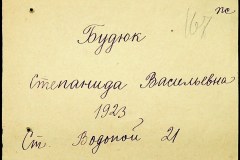 пс
167
Будюк
Степанида Васильевна
1923
Ст. Водопой 21